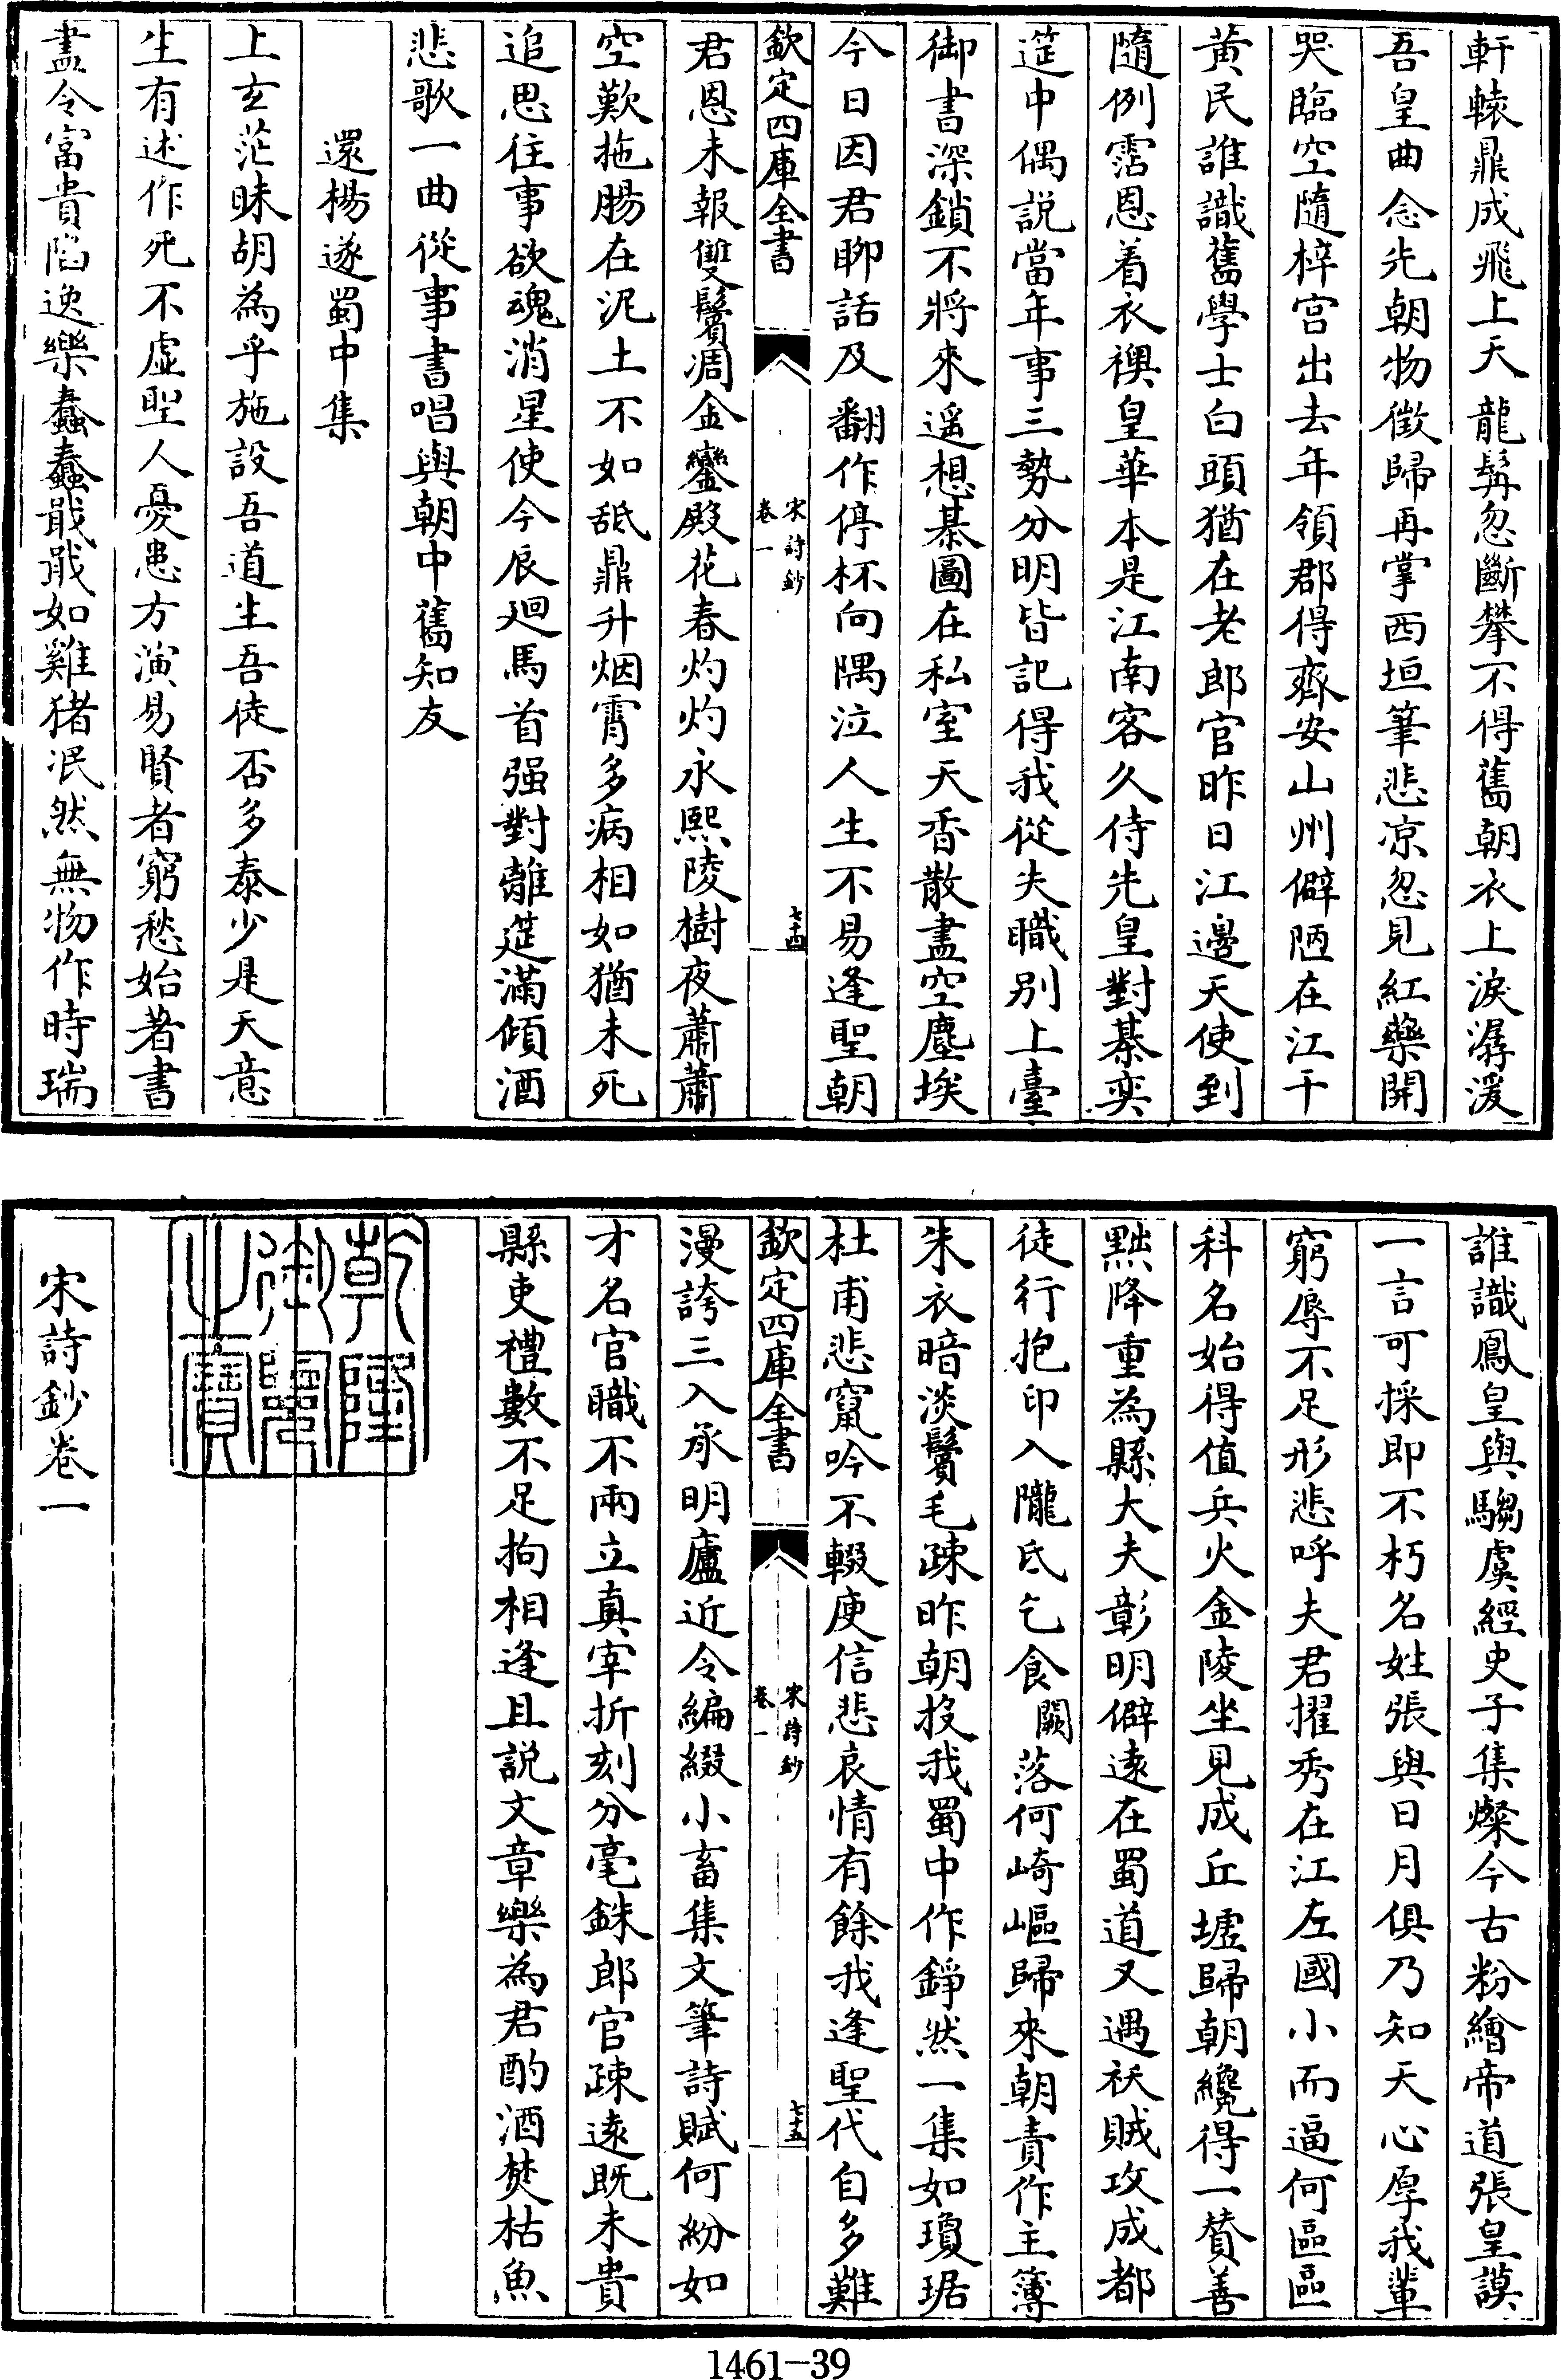 軒轅鼎成飛上天龍髯忽斷攀不得舊朝衣上淚潺湲
吾皇曲念先朝物徵歸再掌西垣筆悲凉忽見紅藥開
哭臨空隨梓宫出去年領郡得齊安山州僻陋在江干
黄民誰識舊學士白頭猶在老郎官昨日江邊天使到
隨例霑恩着衣襖皇華本是江南客久侍先皇對棊奕
筵中偶説當年事三勢分明皆記得我從失職别上臺
御書深鎖不將來遥想棊圖在私室天香散盡空塵埃
今日因君聊話及翻作停杯向隅泣人生不易逢聖朝
欽定四庫全書
宋詩鈔
卷一
七十四
君恩未報雙鬢凋金鑾殿花春灼灼永熙陵樹夜蕭蕭
空歎拖腸在泥土不如舐鼎升烟霄多病相如猶未死
追思往事欲魂消星使今辰廻馬首强對離筵滿傾酒
悲歌一曲從事書唱與朝中舊知友
還楊遂蜀中集
上玄茫昧胡為乎施設吾道生吾徒否多泰少是天意
生有述作死不虚聖人憂患方演易賢者窮愁始著書
盡令富貴陷逸樂蠢蠢戢戢如雞猪泯然無物作時瑞
誰識鳳皇與騶虞經史子集燦今古粉繪帝道張皇謨
一言可採即不朽名姓張與日月俱乃知天心厚我輩
窮辱不足形悲呼夫君擢秀在江左國小而逼何區區
科名始得值兵火金陵坐見成丘墟歸朝纔得一贊善
黜降重為縣大夫彰明僻逺在蜀道又遇祅賊攻成都
徒行抱印入隴氐乞食闕落何崎嶇歸來朝責作主簿
朱衣暗淡鬢毛疎昨朝投我蜀中作錚然一集如瓊琚
杜甫悲竄吟不輟庾信悲哀情有餘我逢聖代自多難
欽定四庫全書
宋詩鈔
卷一
七十五
漫誇三入承明廬近令編綴小畜集文筆詩賦何紛如
才名官職不兩立真宰折刻分毫銖郎官疎逺既未貴
縣吏禮數不足拘相逢且説文章樂為君酌酒焚枯魚
乾隆御覽之寶
宋詩鈔卷一
1461—39